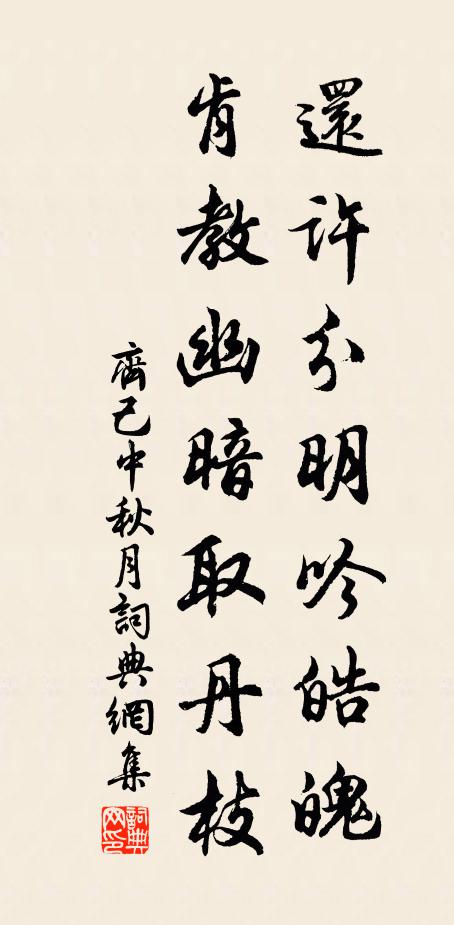 還許分明吟皓魄
肯教幽暗取丹枝
齊己中秋月詞典網集
詞典网印